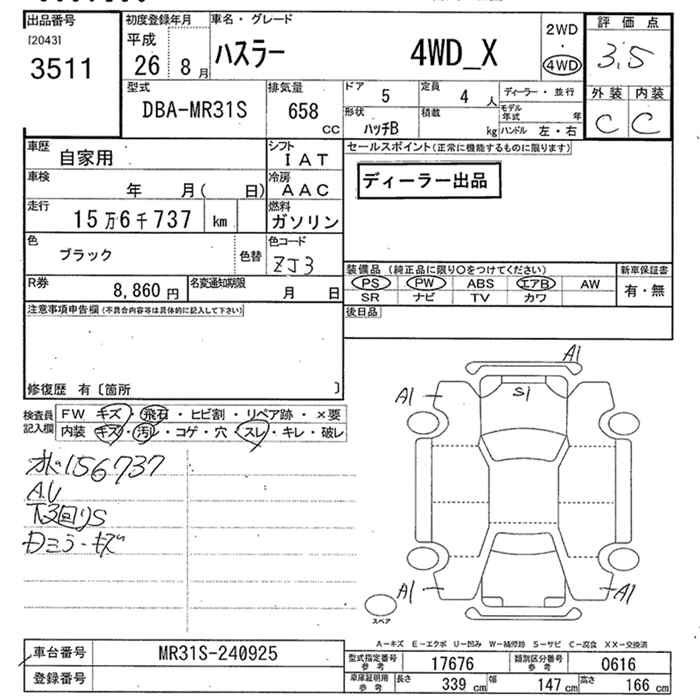 出品番号
[2043]
3511
初度登録年月
平成
26 8月
車名・グレード
ハスラー 4WD_X
2WD
・
4WD
評価点
3.5
外装 内装
C C
型式
DBA-MR31S
排気量
658
CC
ドア
5
定員
4 人
ディーラー・並行
形状
ハッチB
積載
kg
モデル年式 年
ハンドル 左・右
車歴
自家用
シフト
IAT
車検
年 月( 日)
冷房
AAC
走行
15万6千737 km
燃料
ガソリン
色
ブラック
色替
色コード
ZJ3
R券
8,860 円
名変通知期限
月 日
セールスポイント(正常に機能するものに限ります)
ディーラー出品
装備品 (純正品に限り○をつけてください)
新車保証書
PS PW ABS エアB AW
有・無
SR ナビ TV カワ
後日品
注意事項申告欄(不具合内容等は具体的に記入して下さい)
修復歴 有〔箇所 〕
検査員記入欄
FW キズ・飛石・ヒビ割・リペア跡・×要
内装 キズ・汚レ・コゲ・穴・スレ・キレ・破レ
オド156737
AU
下3回りS
Dミラーキズ
A1
A1
S1
A1
A1
スペア
A-キズ E-エクボ U-凹み W-補修跡 S-サビ C-腐食 XX-交換済
車台番号
MR31S-240925
登録番号
型式指定番号参考
17676
類別区分番号参考
0616
車庫証明用参考
長さ 339 cm
幅 147 cm
高さ 166 cm